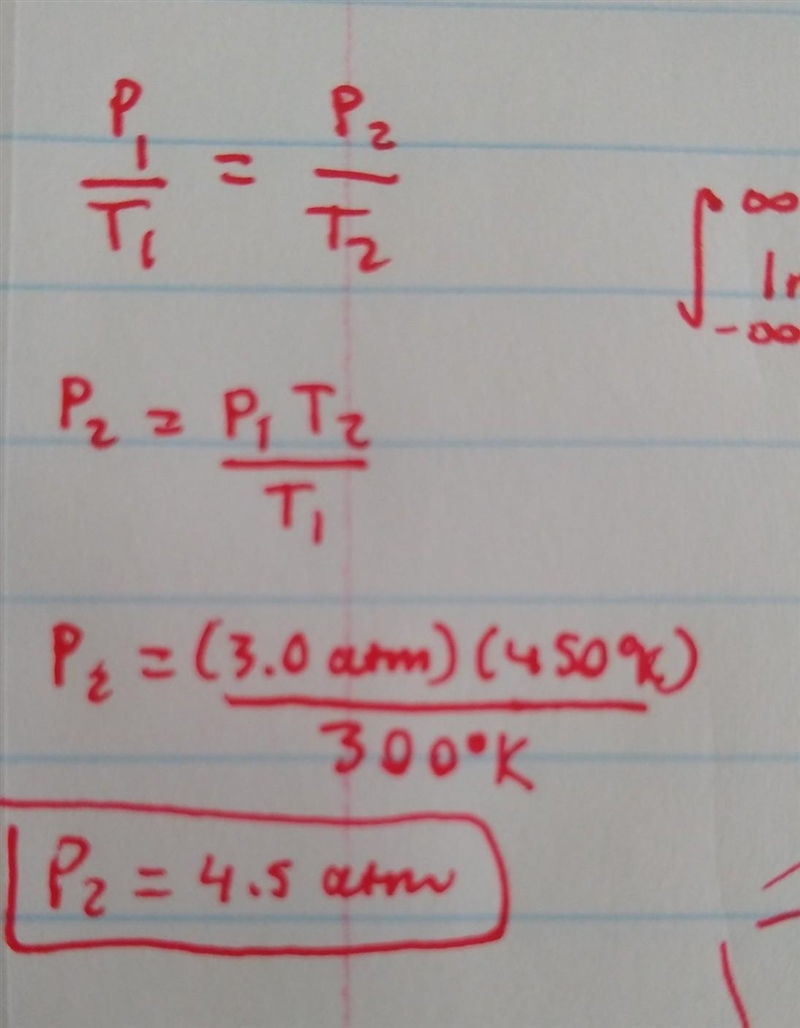 P₁/T₁ = P₂/T₂
∫ ∞ -∞
P₂ = P₁ T₂ / T₁
P₂ = (3.0 atm) (450°K) / 300°K
P₂ = 4.5 atm